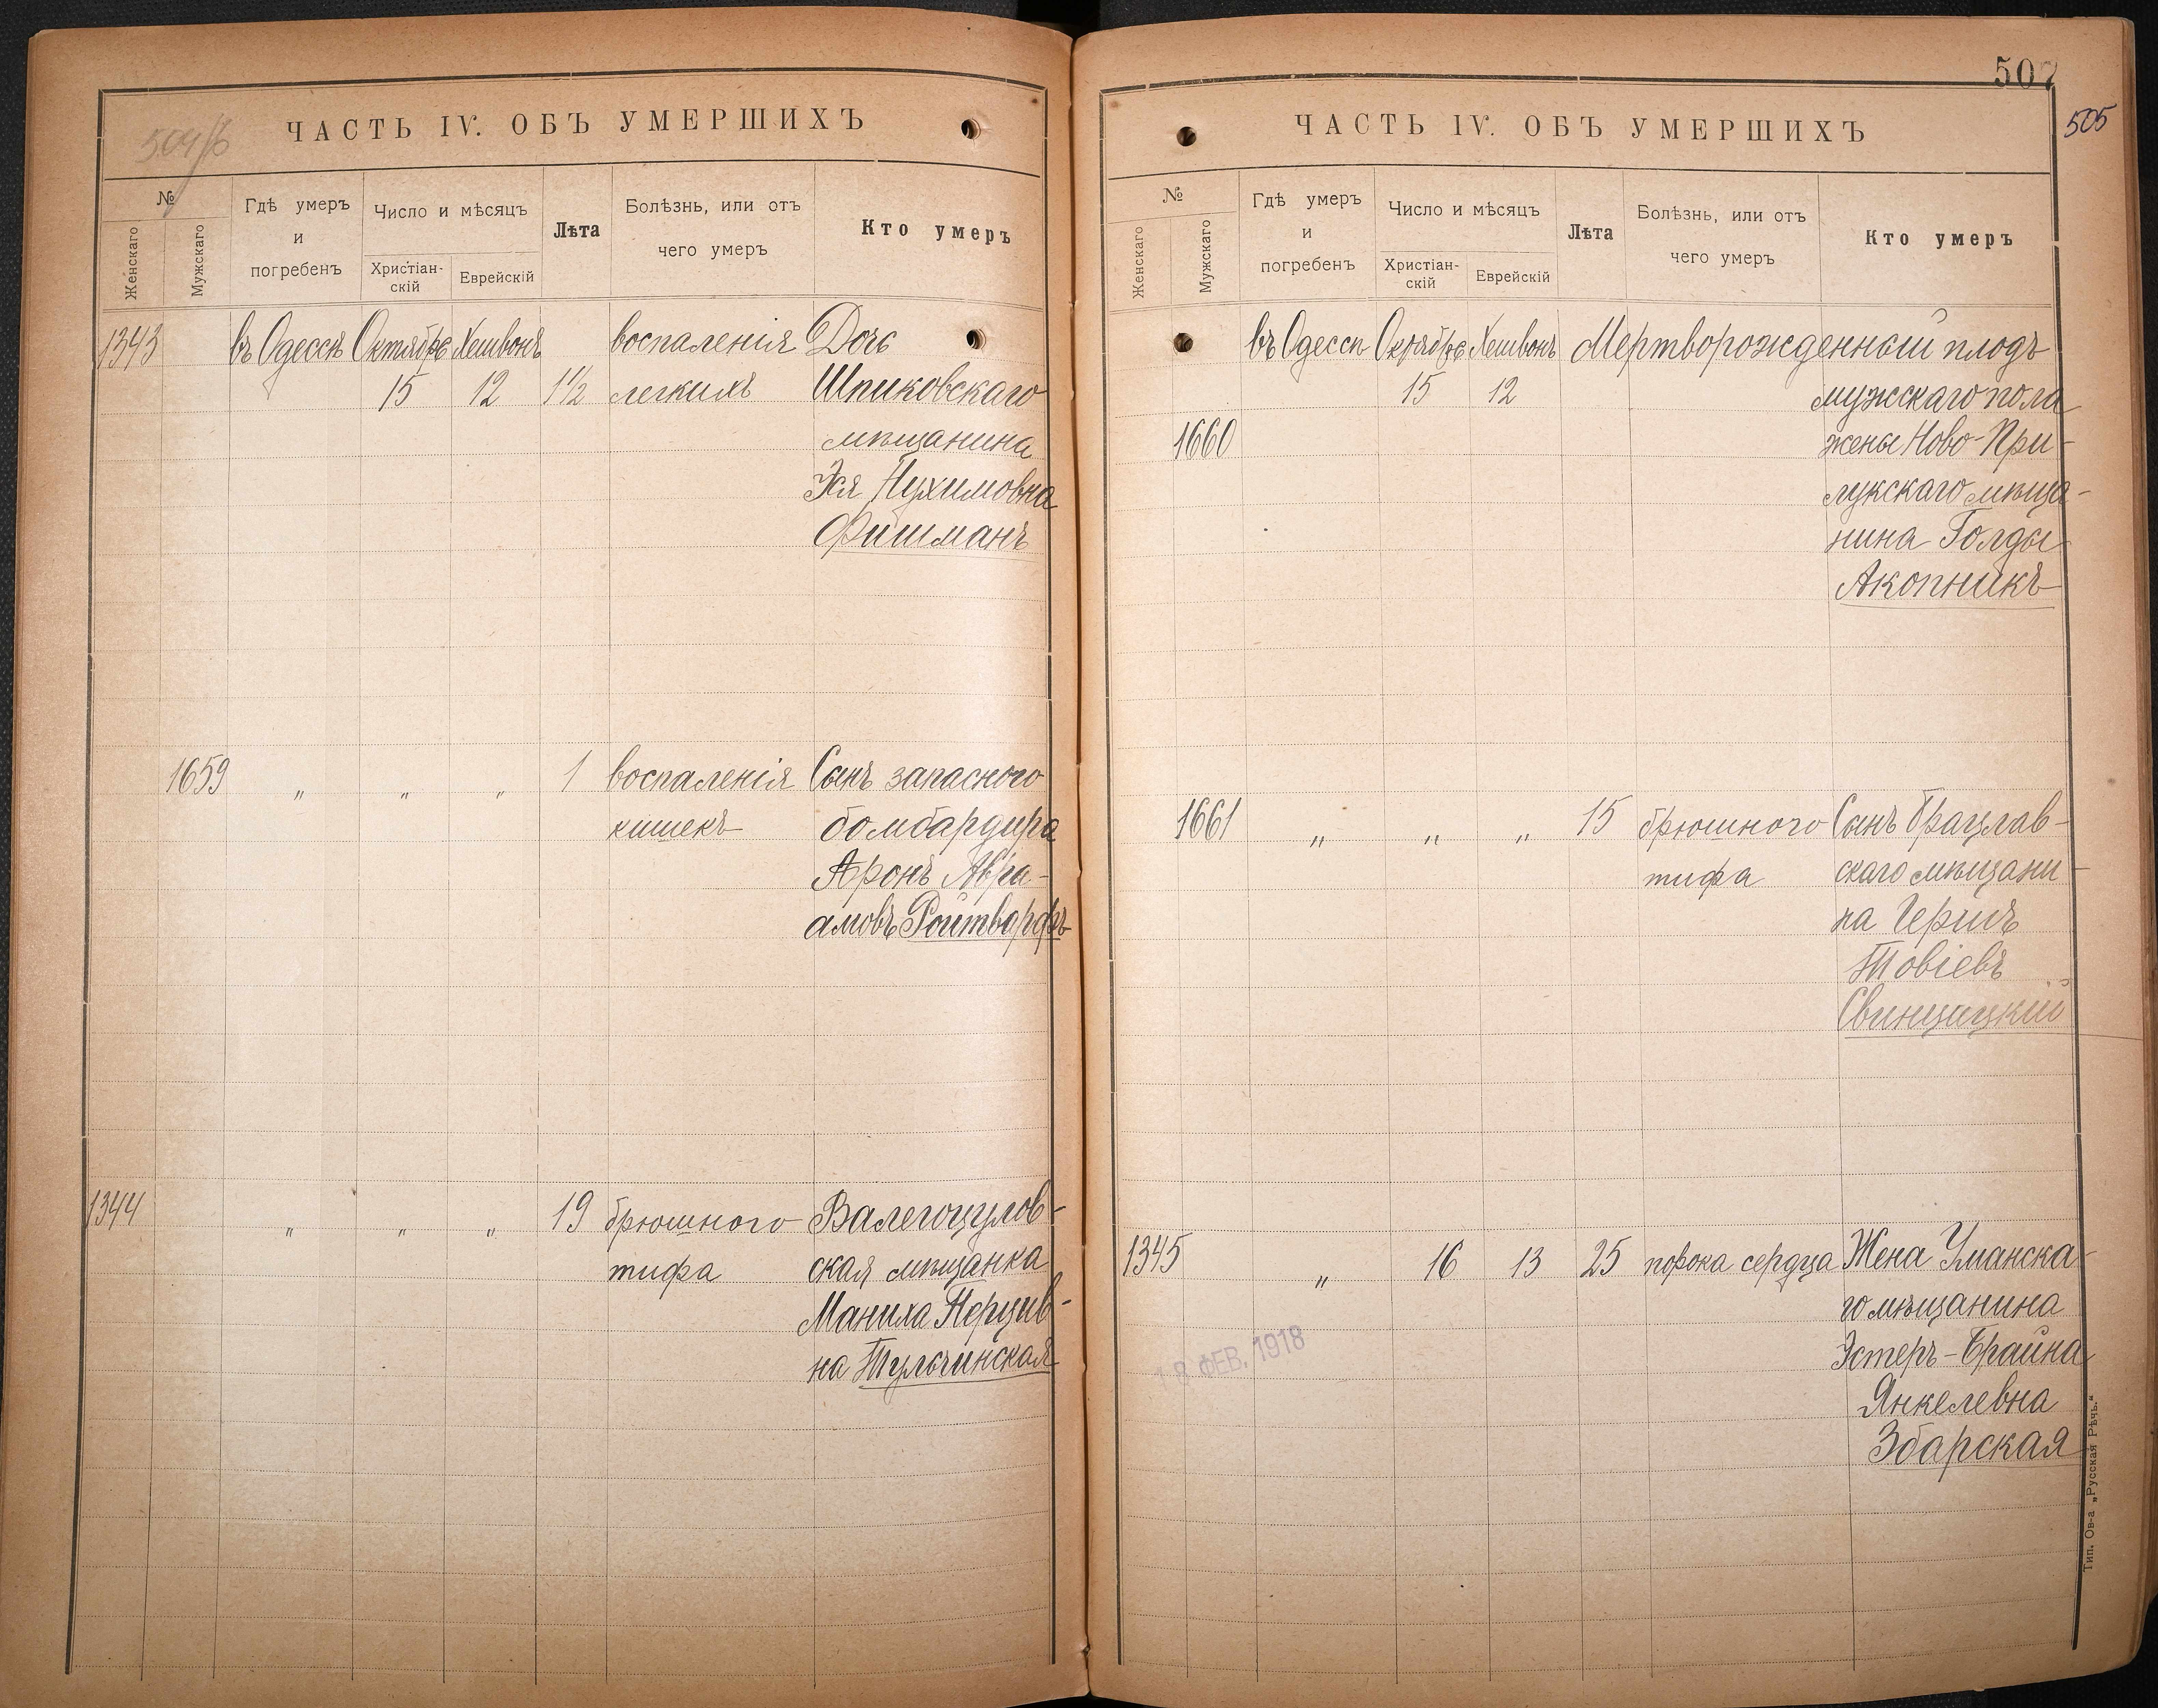 504/б
ЧАСТЬ IV. ОБЪ УМЕРШИХЪ
№
Женскаго
Мужскаго
Гдѣ умеръ
и
погребенъ
Число и мѣсяцъ
Христіан-
скій
Еврейскій
Лѣта
Болѣзнь, или отъ
чего умеръ
Кто умеръ
1343 въ Одессѣ Октябрь Хешвонъ воспаленія Дочь
15 12 1½ легкихъ Шпиковскаго
мѣщанина
Эя Нухимовна
Фишманъ
1659 " " " 1 воспаленія Сынъ запаснаго
кишекъ бомбардира
Аронъ Авра-
амовъ Ройтворфъ
1344 " " " 19 брюшного Валегоцулов-
тифа ская мѣщанка
Маниха Перцив-
на Тульчинская
507
505
ЧАСТЬ IV. ОБЪ УМЕРШИХЪ
№
Женскаго
Мужскаго
Гдѣ умеръ
и
погребенъ
Число и мѣсяцъ
Христіан-
скій
Еврейскій
Лѣта
Болѣзнь, или отъ
чего умеръ
Кто умеръ
въ Одессѣ Октябрь Хешвонъ Мертворожденный плодъ
15 12 мужскаго пола
1660 жены Ново-При-
лукскаго мѣща-
нина Голды
Акопникъ
1661 " " " 15 брюшного Сынъ Брацлав-
тифа скаго мѣщани-
на Гершъ
Товіевъ
Свинщицкій
1345 " 16 13 25 порока сердца Жена Уманска-
го мѣщанина
Эстеръ-Брайна
Янкелевна
Збарская
18 ФЕВ. 1918
Тип. Ов-а „Русская Рѣчь."